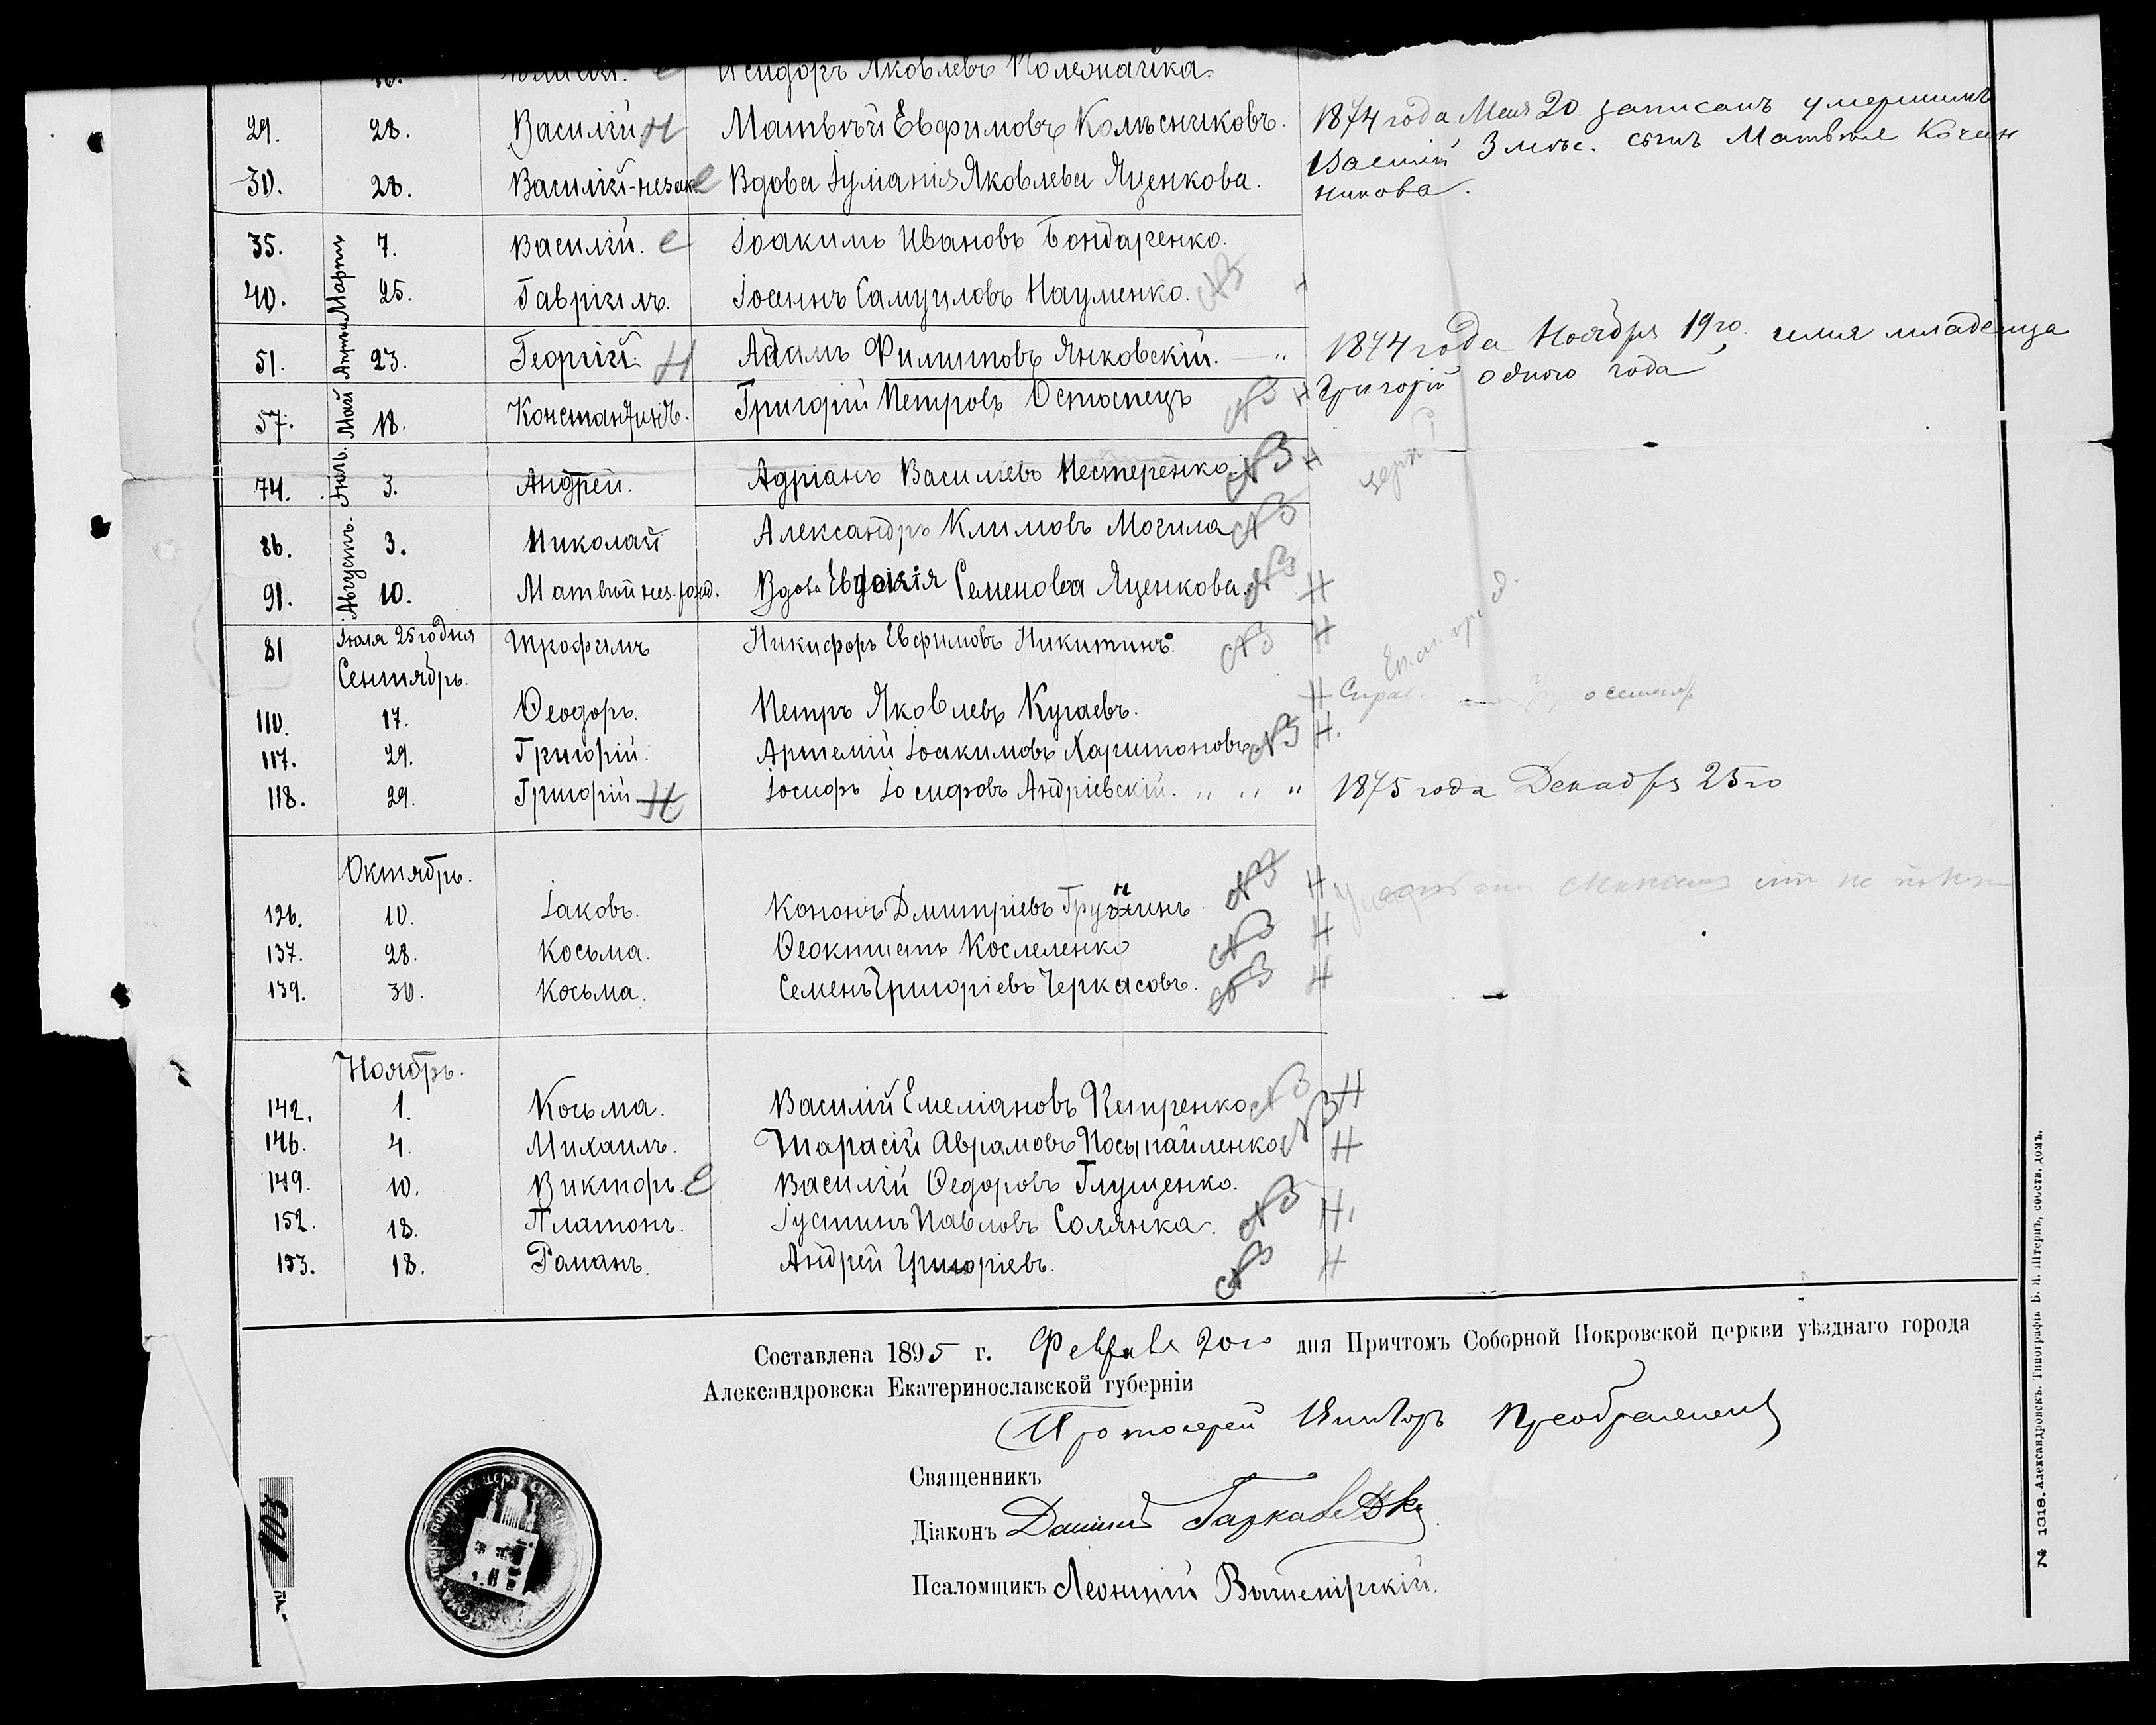 Исидоръ Яковлевъ
29. 28. Василій. Н Матвѣй Евфимовъ Колѣсниковъ. 1874 года Мая 20 записанъ умершимъ
Василій 3 мѣс. сынъ Матвѣя
30. 28. Василій-незак. Вдова Іуліанія Яковлева Яценкова. никова.
Мартъ
35. 7. Василій. е Іоакимъ Ивановъ Бондаренко.
40. 25. Гавріилъ. Іоаннъ Самуиловъ Науменко. №3
Апрѣль
51. 23. Георгій. Н Адамъ Филипповъ Янковскій. — „ 1874 года Ноября 19го. младенца
Григорій одного года
Май
57. 18. Константинъ. Григорій Петровъ №3 Н
Іюль.
74. 3. Андрей. Адріанъ Василіевъ Нестеренко. №3 Н
Августъ.
86. 3. Николай Александръ Климовъ Могила №3
91. 10. Матвѣй нез. рожд. Вдова Евдокія Семенова Яценкова. №3 Н
81 Іюля 25го дня Трофимъ Никифоръ Евфимовъ Никитинъ. №3 Н
Сентябрь.
110. 17. Ѳеодоръ. Петръ Яковлевъ Кугаевъ. Н
117. 29. Григорій. Артемій Іоакимовъ Харитоновъ №3 Н.
118. 29. Григорій Н Іосифъ Іосифовъ Андріевскій. „ „ „ 1875 года Декабря 25го
Октябрь.
126. 10. Іаковъ. Кононъ Дмитріевъ №3 Н
137. 28. Косьма. Ѳеоктистъ №3 Н
139. 30. Косьма. Семенъ Григоріевъ Черкасовъ. №3 Н
Ноябрь.
142. 1. Косьма. Василій Емеліановъ Петренко №3 Н
146. 4. Михаилъ. Тарасій Аврамовъ Посыпайленко №3 Н
149. 10. Викторъ. е Василій Ѳедоровъ Глущенко.
152. 18. Платонъ. Іустинъ Павловъ Солянка. №3 Н.
153. 18. Романъ. Андрей Григоріевъ. №3 Н
Составлена 1895 г. Февраля 20го дня Причтомъ Соборной Покровской церкви уѣзднаго города
Александровска Екатеринославской губерніи
Протоіерей Викторъ Преображенскій
Священникъ
Діаконъ Даніилъ
Псаломщикъ Леонтій
103
№ 1318. Александровскъ. Типографія Б. Я. Штернъ, собств. домъ.